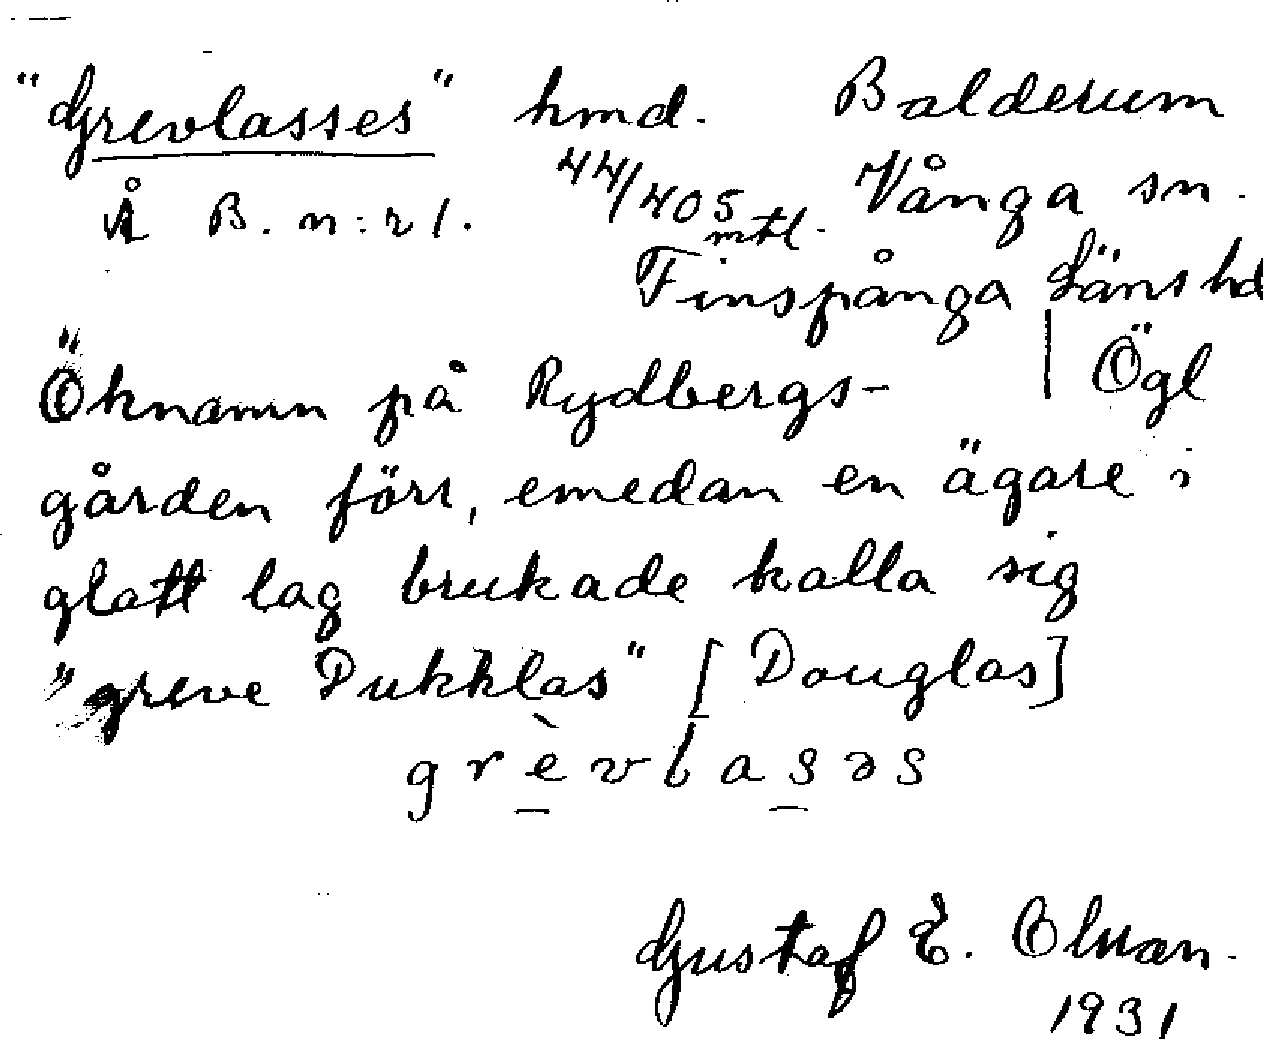 "Grevlasses" hmd. Balderum
Å B. n:r 1. 44/405 mtl. Vånga sn.
Finspånga Läns hd
Öknamn på Rydbergs- | Ögl
gården förr, emedan en ägare i
glatt lag brukade kalla sig
"greve Dukklas" [Douglas]
grèvlasəs
Gustaf E. Olsson.
1931